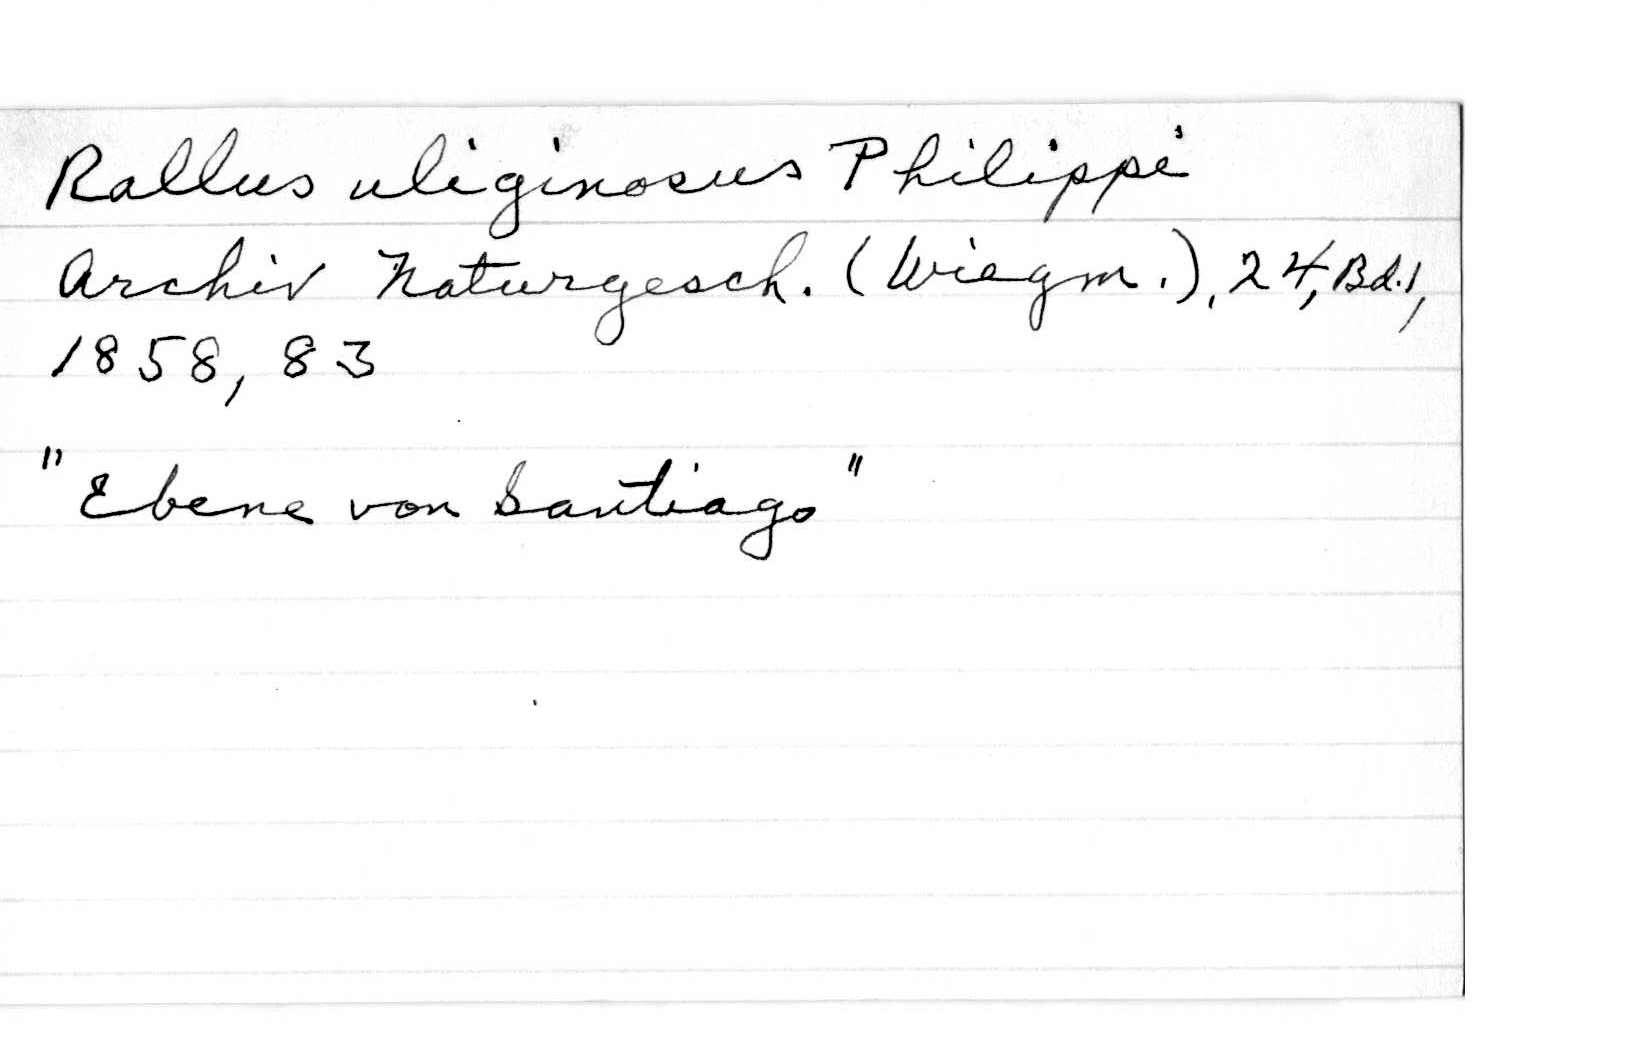 Rallus uliginosus Philippi
Archiv Naturgesch. (Wiegm.), 24, Bd.1,
1858, 83
"Ebene von Santiago"